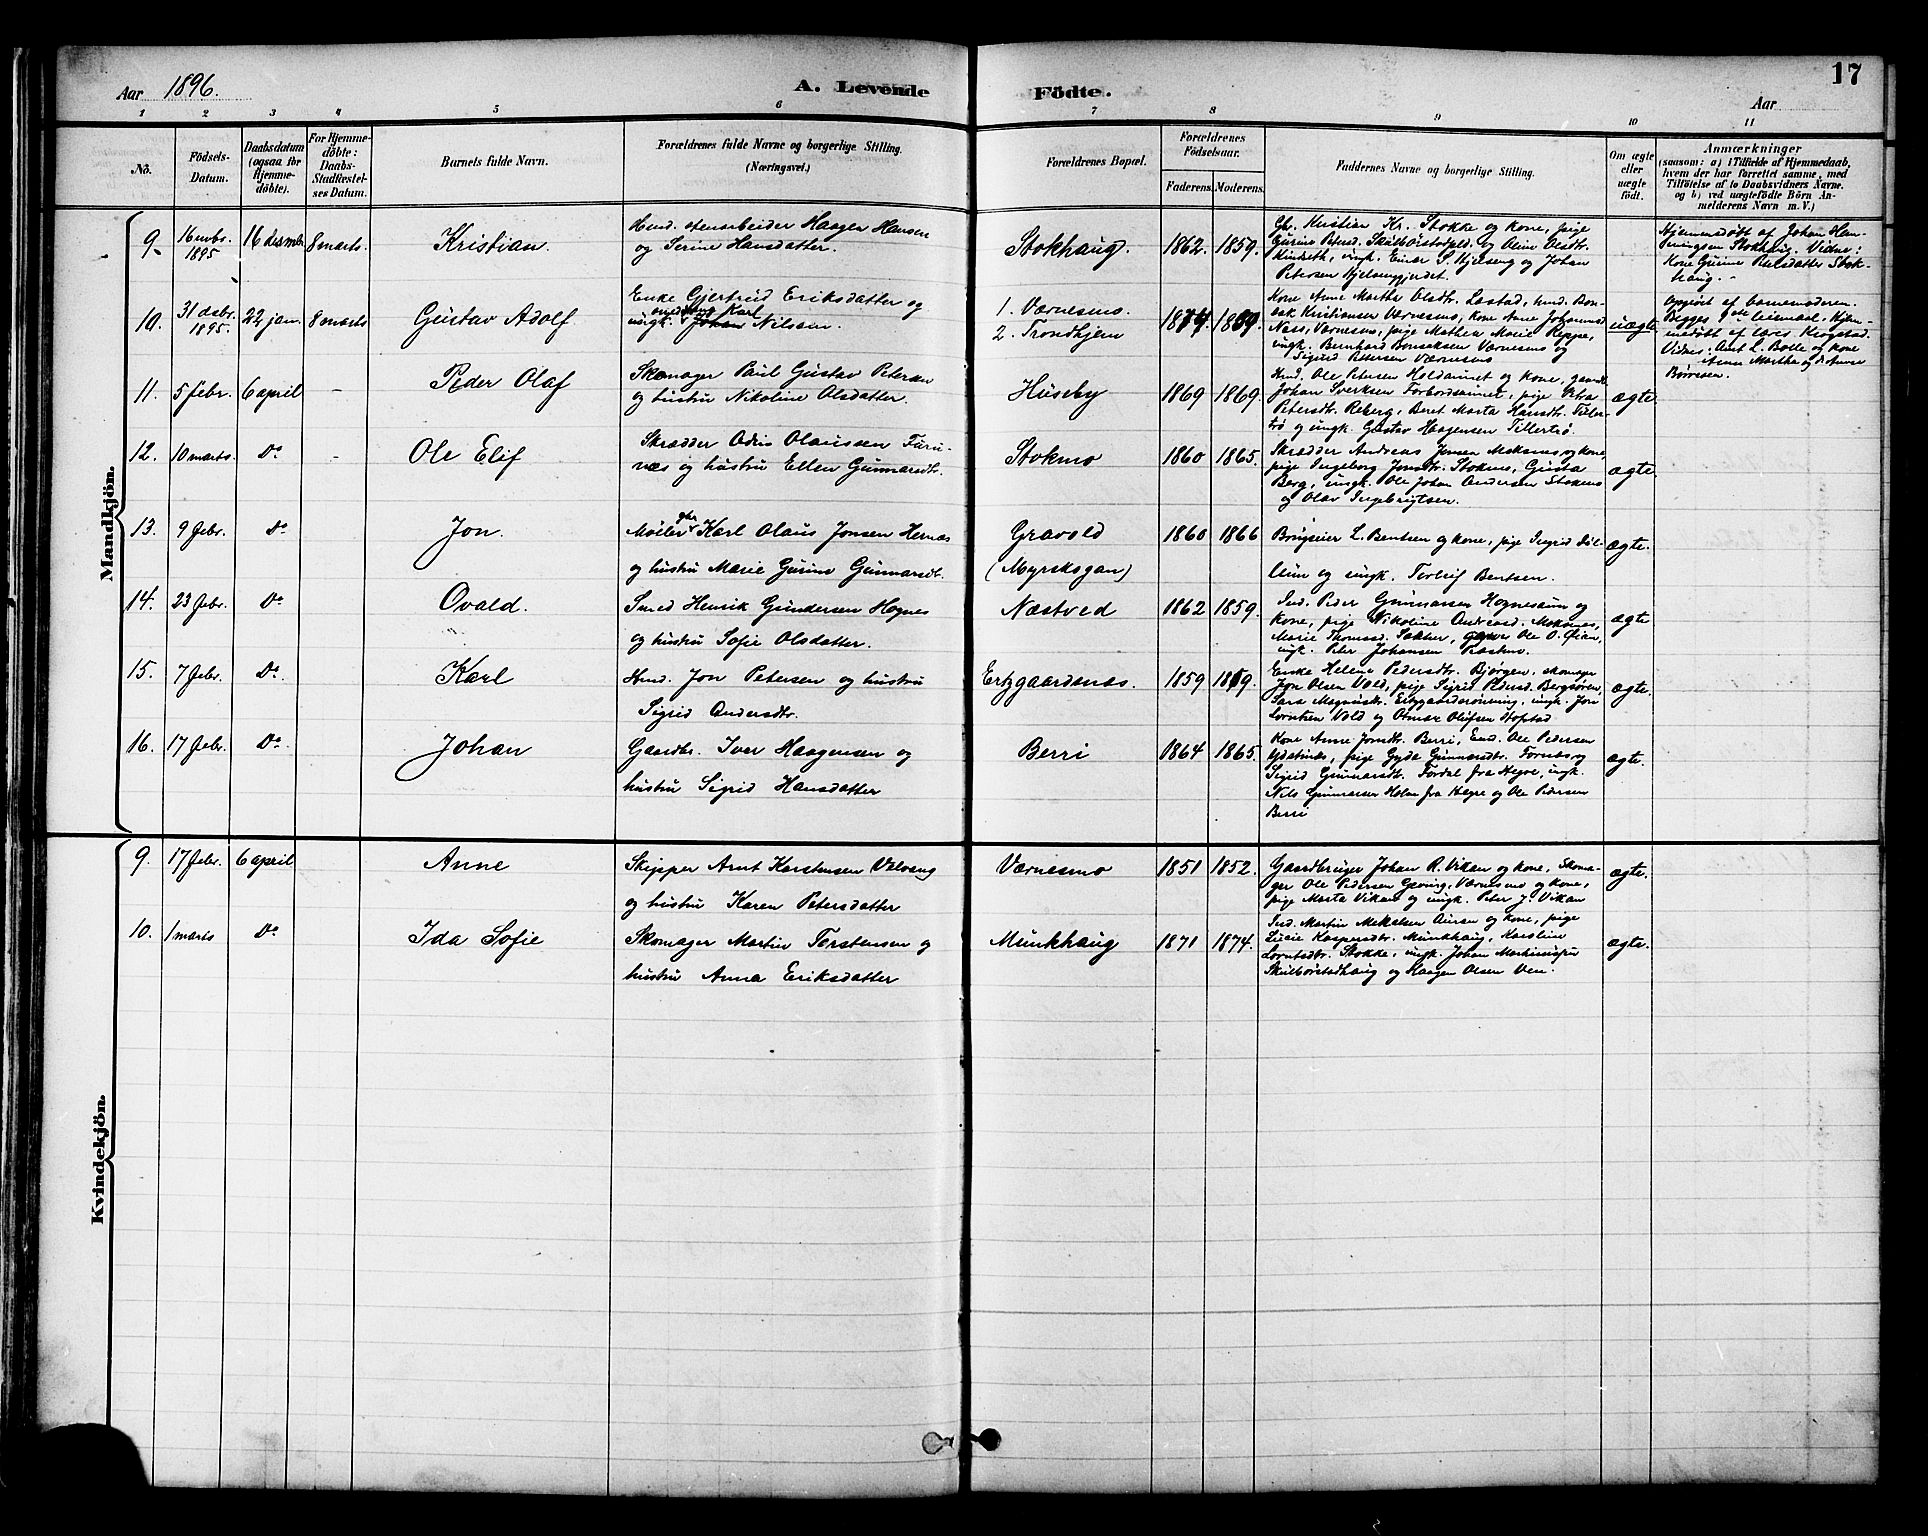 17
Aar 1896.
A. Levende Födte.
Aar
1 2 3 4 5 6 7 8 9 10 11
No.
Födsels-Datum.
Daabsdatum (ogsaa for Hjemmedöbte).
For Hjemmedöbte: Daabs-Stadfæstelses Datum.
Barnets fulde Navn.
Forældrenes fulde Navne og borgerlige Stilling. (Næringsvei.)
Forældrenes Bopæl.
Forældrenes Födselsaar.
Faderens. Moderens.
Faddernes Navne og borgerlige Stilling.
Om ægte eller uægte født.
Anmærkninger
(saasom: a) i Tilfælde af Hjemmedaab,
hvem der har forrettet samme, med
Tilföielse af to Daabsvidners Navne.
og b) ved uægtefödte Börn An-
melderens Navn m. V.)
Mandkjön.
9. 16 novbr. 1895 16 desmbr. 8 marts. Kristian.
Hmd. stenarbeider Haagen Hansen
og Serine Hansdatter.
Stokhaug. 1862. 1859.
Gb. Kristian Kr. Stokke og kone, pige
Gurine Petersd. Skulbörstadfald, og Oline Olsdtr.
Kindseth, ungk. Einar S. Hjelseng og Johan
Petersen Hjelsenggjerdet.
Hjemmedöbt af Johan Hen-
ningsen Stokhaug. Vidne:
Kone Gurine Pulsdatter Stok-
haug.
10. 31 dsbr. 1895. 22 jan. 8 marts Gustav Adolf.
Enke Gjertrud Eriksdatter og
ungk. Johan Karl Nilssen.
1. Værnesmo.
2. Trondhjem
1874 1859. uægte.
Kone Anne Martha Olsdtr. Lastad, hmd. Bon-
sak Kristiansen Værnesmo, kone Anne Johannesd.
Næss, Værnesmo, pige Mathea Marie Reppe,
ungk. Bernhard Bonsaksen Værnesmo og
Sigurd Petersen Værnesmo
Opgivet af barnemoderen.
Begges leiermaal. Hjem-
medöbt af lærer Krogstad.
Vidner: Arnt L. Bolle og kone
Anne Martha og do Anne
Börresen.
11. 5 febr. 6 april - Peder Olaf
Skomager Paul Gustav Petersen
og hustru Nikoline Olsdatter.
Huseby 1869 1869. ægte.
Hmd. Ole Petersen Holdamnet og kone, gaardbr.
Johan Sverksen Forbordsaunet, pige Petra
Petersdtr. Reberg, Beret Marta Hansdtr. Tiller-
trø og ungk. Gustav Haagensen Tillertrø.
12. 10 marts Do - Ole Elif
Skrædder Odin Olaussen Furu-
næs og hustru Ellen Gunnarsdtr.
Stokmo 1860 1865. ægte.
Skrædder Andreas Jensen Moksnes og kone
pige Ingeborg Jonsdtr. Stokmo, Gusta
Berg, ungk. Ole Johan Andersen Stokmo
og Olav Ingebrigtsen.
13. 9 febr. Do Jon.
Møller Karl Olaus Jonsen Hernæs
og hustru Marie Gurine Gunnarsdt.
Gravold
(Myrskogan)
1860 1866 ægte.
Brugseier L. Bentsen og kone, pige Ingrid
og ungk. Torleif Bentsen.
14. 23 febr. Do Ovald.
Smed Henrik Gundersen Hognes
og hustru Sofie Olsdatter.
Næstved 1862 1859. ægte
Ind. Peder Gunnarsen Hognesaun og
kone, pige Nikoline Andreasd. Moksnes,
Marie Thomasd. Ole O. Øian,
ungk. Peter Johansen Præstmo.
15. 7 febr. Do Karl
Hmd. Jon Petersen og hustru
Sigrid Andersdtr.
Ertzgaardsnæs. 1859 1859. ægte.
Enke Helene Pedersdtr. Bjørgen, skomager
Jon Olsen Vold, pige Sigrid Pedersd. Bergsøren,
Sara Magnusdtr. Ertzgaardsrønning, ungk. Jon
Lorntsen Vold og Otmar Olufsen Hofstad
16. 17 febr. Do Johan
Gaardbr. Iver Haagensen og
hustru Sigrid Hansdatter
Berri 1864 1865. ægte.
Kone Anne Jonsdtr. Berri, Emd. Ole Pedersen
pige Gyda Gunnarsdtr. Fornes og
Sigrid Gunnarsdt. Fordal fra Hegre, ungk.
Nils Gunnarsen Holm fra Hegre og Ole Pedersen
Berri
Kvindekjön.
9. 17 febr. 6 april Anne
Skipper Arnt Karstensen Valvaag
og hustru Karen Petersdatter
Værnesmo 1851 1852. ægte.
Gaardbruger Johan R. Vikan og kone, Skoma-
ger Ole Pedersen Geving, Værnesmo og kone,
pige Marta Vikan og ungk. Peter J. Vikan
10. 1 marts Do Ida Sofie
Skomager Martin Torstensen og
hustru Anna Eriksdatter
Munkhaug 1871 1874. ægte.
Ind. Martin Mekalsen Auran og kone, pige
Lucie Kaspersdtr. Munkhaug, Karoline
Lorntsdtr. Stokke, ungk. Johan Martinussen
Skulbörstadhaug og Haagen Olsen Ven.